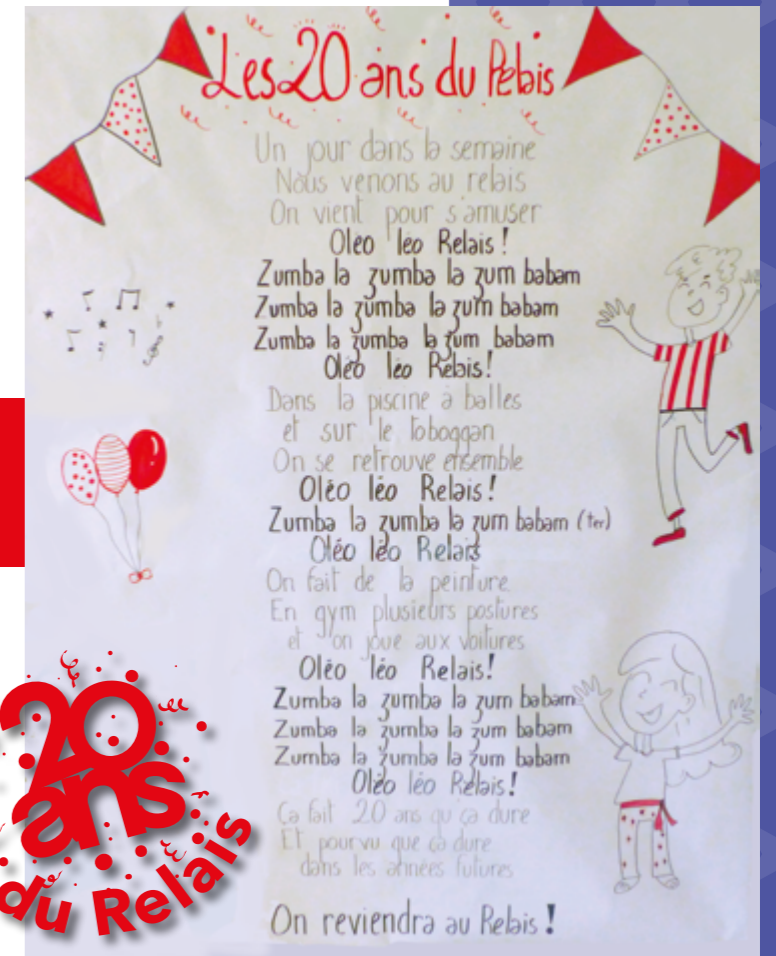 Les 20 ans du Relais
Un jour dans la semaine
Nous venons au relais
On vient pour s'amuser
Oléo léo Relais !
Zumba la zumba la zum babam
Zumba la zumba la zum babam
Zumba la zumba la zum babam
Oléo léo Relais !
Dans la piscine à balles
et sur le toboggan
On se retrouve ensemble
Oléo léo Relais !
Zumba la zumba la zum babam (ter)
Oléo léo Relais
On fait de la peinture
En gym plusieurs postures
et on joue aux voitures
Oléo léo Relais !
Zumba la zumba la zum babam
Zumba la zumba la zum babam
Zumba la zumba la zum babam
Oléo léo Relais !
Ça fait 20 ans qu ça dure
Et pourvu que ça dure
dans les années futures
On reviendra au Relais !
20
ans
du Relais